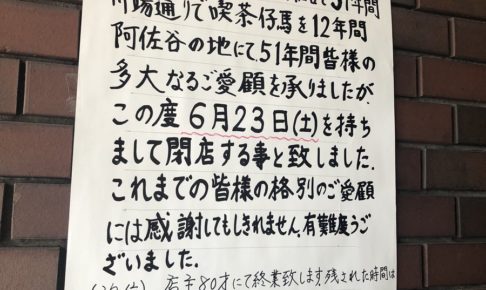 市場通りで喫茶仔馬を12年間
阿佐谷の地にて51年間皆様の
多大なるご愛顧を承りましたが、
この度6月23日(土)を持ち
まして閉店する事と致しました.
これまでの皆様の格別のご愛顧
には感謝してもしきれません.有難度うご
ざいました.
店主80才にて終業致します残された時間は